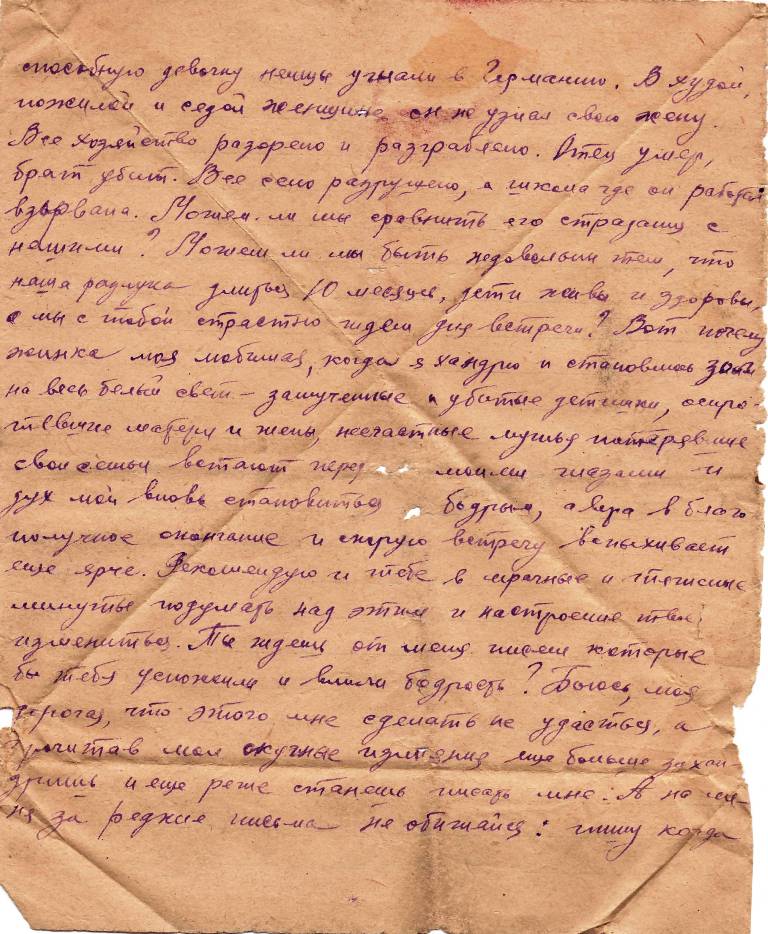 способную девочку немцы угнали в Германию. В худой,
пожилой и седой женщине он не узнал свою жену.
Все хозяйство разорено и разграблено. Отец умер,
брат убит. Все село разрушено, а школа где он работал
взорвана. Можем ли мы сравнить его страдания с
нашими? Можем ли мы быть недовольны тем, что
наша разлука длиться 10 месяцев, дети живы и здоровы,
а мы с тобой страстно ждем дня встречи? Вот почему
жинка моя любимая, когда я хандрю и становлюсь злым
на весь белый свет – замученные и убитые детишки, осиро-
тевшие матери и жены, несчастные мужья потерявшие
свои семьи встают перед моими глазами и
дух мой вновь становиться бодрым, а вера в благо-
получное окончание и скорую встречу вспыхивает
еще ярче. Рекомендую и тебе в мрачные и тягостные
минуты подумать над этим и настроение твое
измениться. Ты ждешь от меня писем которые
бы тебя успокоили и влили бодрость? Боюсь, моя
дорогая, что этого мне сделать не удасться, а
прочитав мои скучные излияния еще больше захан-
дришь и еще реже станешь писать мне. А на ме-
ня за редкие письма не обижайся: пишу когда